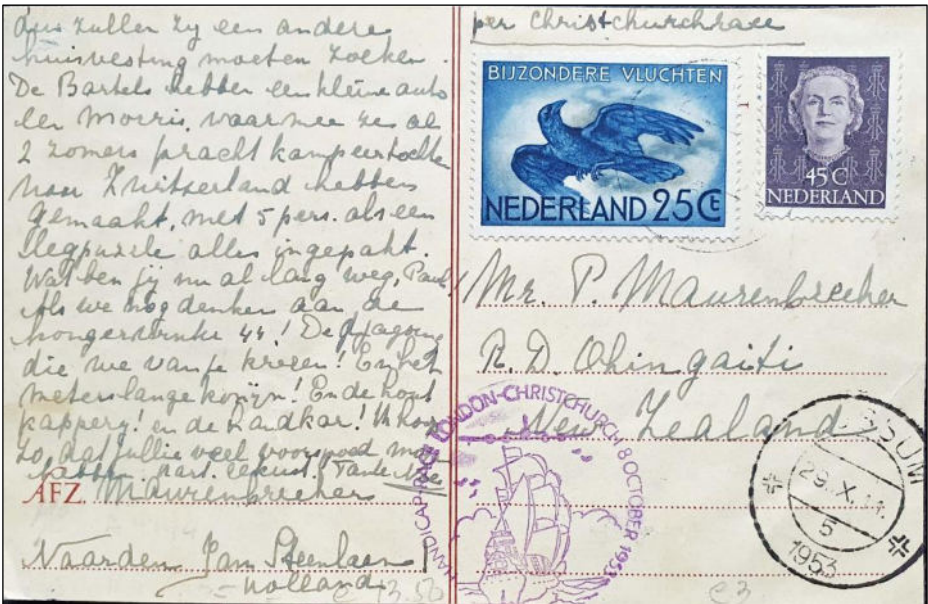 dus zullen zij een andere
huisvesting moeten zoeken.
De Bartels hebben een kleine auto
een Morris, waarmee ze al
2 zomers pracht kampeertochten
naar Zwitserland hebben
gemaakt, met 5 pers. als een
legpuzzle alles ingepakt.
Wat ben jij nu al lang weg, Paul!
Als we nog denken aan de
hongerwinter 44! De
die we van je kregen! En het
meterslange konijn! En de hout
kapperij! en de handkar! Ik hoop
zo, dat jullie veel voorspoed mogen
hebben. Hart. Tante
AFZ. Maurenbrecher
Naarden Jan Steenlaan 1
- Holland -
13.50
per Christchurchrace
BIJZONDERE VLUCHTEN
NEDERLAND 25 Ct
45 C
NEDERLAND
1
Mr. P. Maurenbrecher
R.D. Ohingaiti
New Zealand
HANDICAP-RACE LONDON-CHRISTCHURCH 8 OCTOBER 1953
SUM
29.X.11.
5
1953
e3